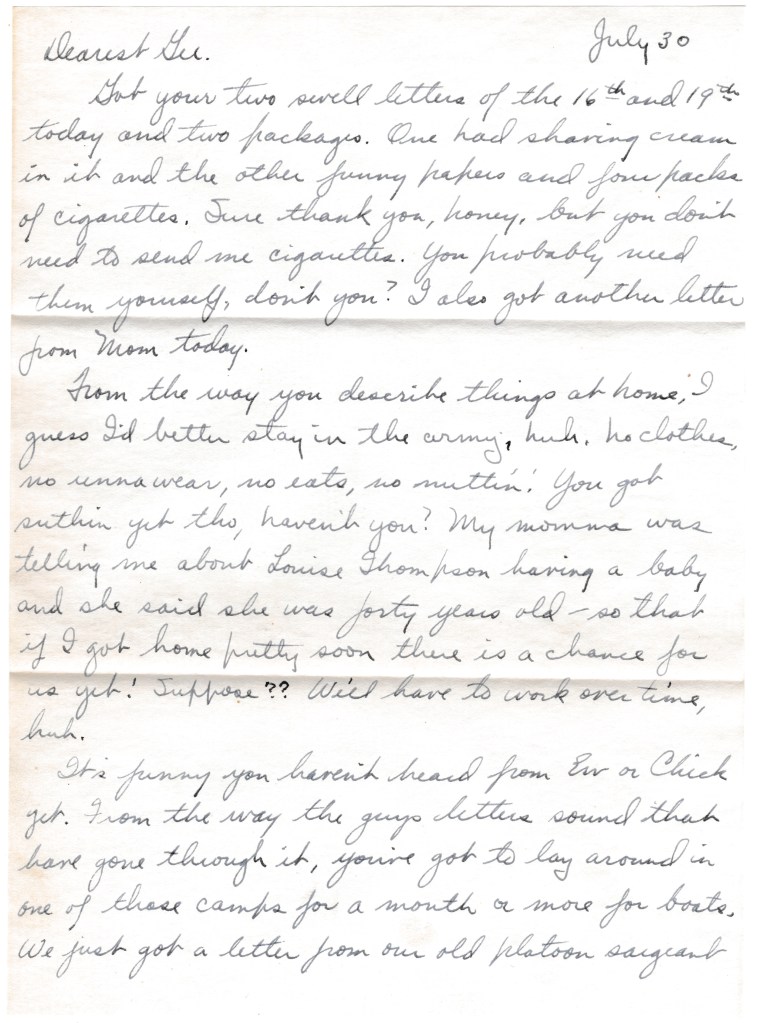 July 30
Dearest Gee.
Got your two swell letters of the 16th and 19th
today and two packages. One had shaving cream
in it and the other funny papers and four packs
of cigarettes. Sure thank you, honey, but you don't
need to send me cigarettes. You probably need
them yourself, don't you? I also got another letter
from Mom today.
From the way you describe things at home, I
guess I'd better stay in the army, huh. No clothes,
no unnawear, no eats, no nuttin'! You got
suthin yet tho, haven't you? My momma was
telling me about Louise Thompson having a baby
and she said she was forty years old – so that
if I got home pretty soon there is a chance for
us yet! Suppose?? We'll have to work over time,
huh.
It's funny you haven't heard from Erv or Chick
yet. From the way the guys letters sound that
have gone through it, you've got to lay around in
one of those camps for a month or more for boats.
We just got a letter from our old platoon sargeant